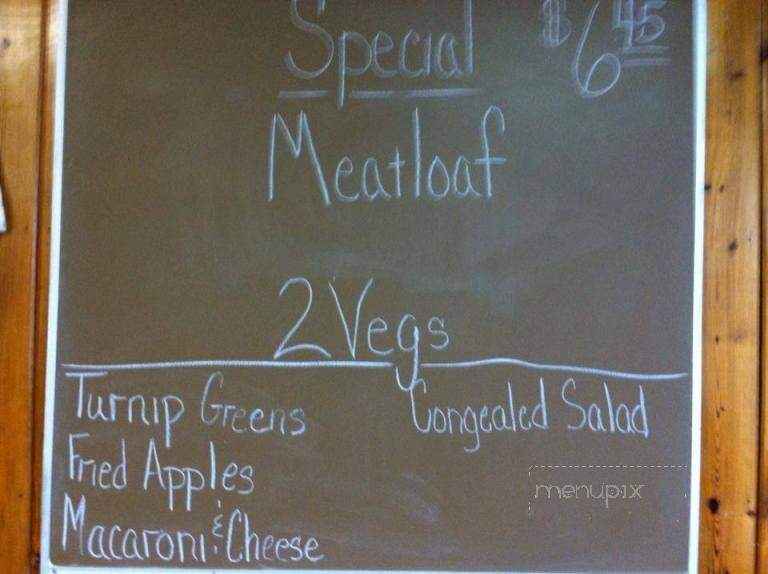 Special $6.45
Meatloaf
2 Vegs
Turnip Greens
Congealed Salad
Fried Apples
Macaroni & Cheese
menupix